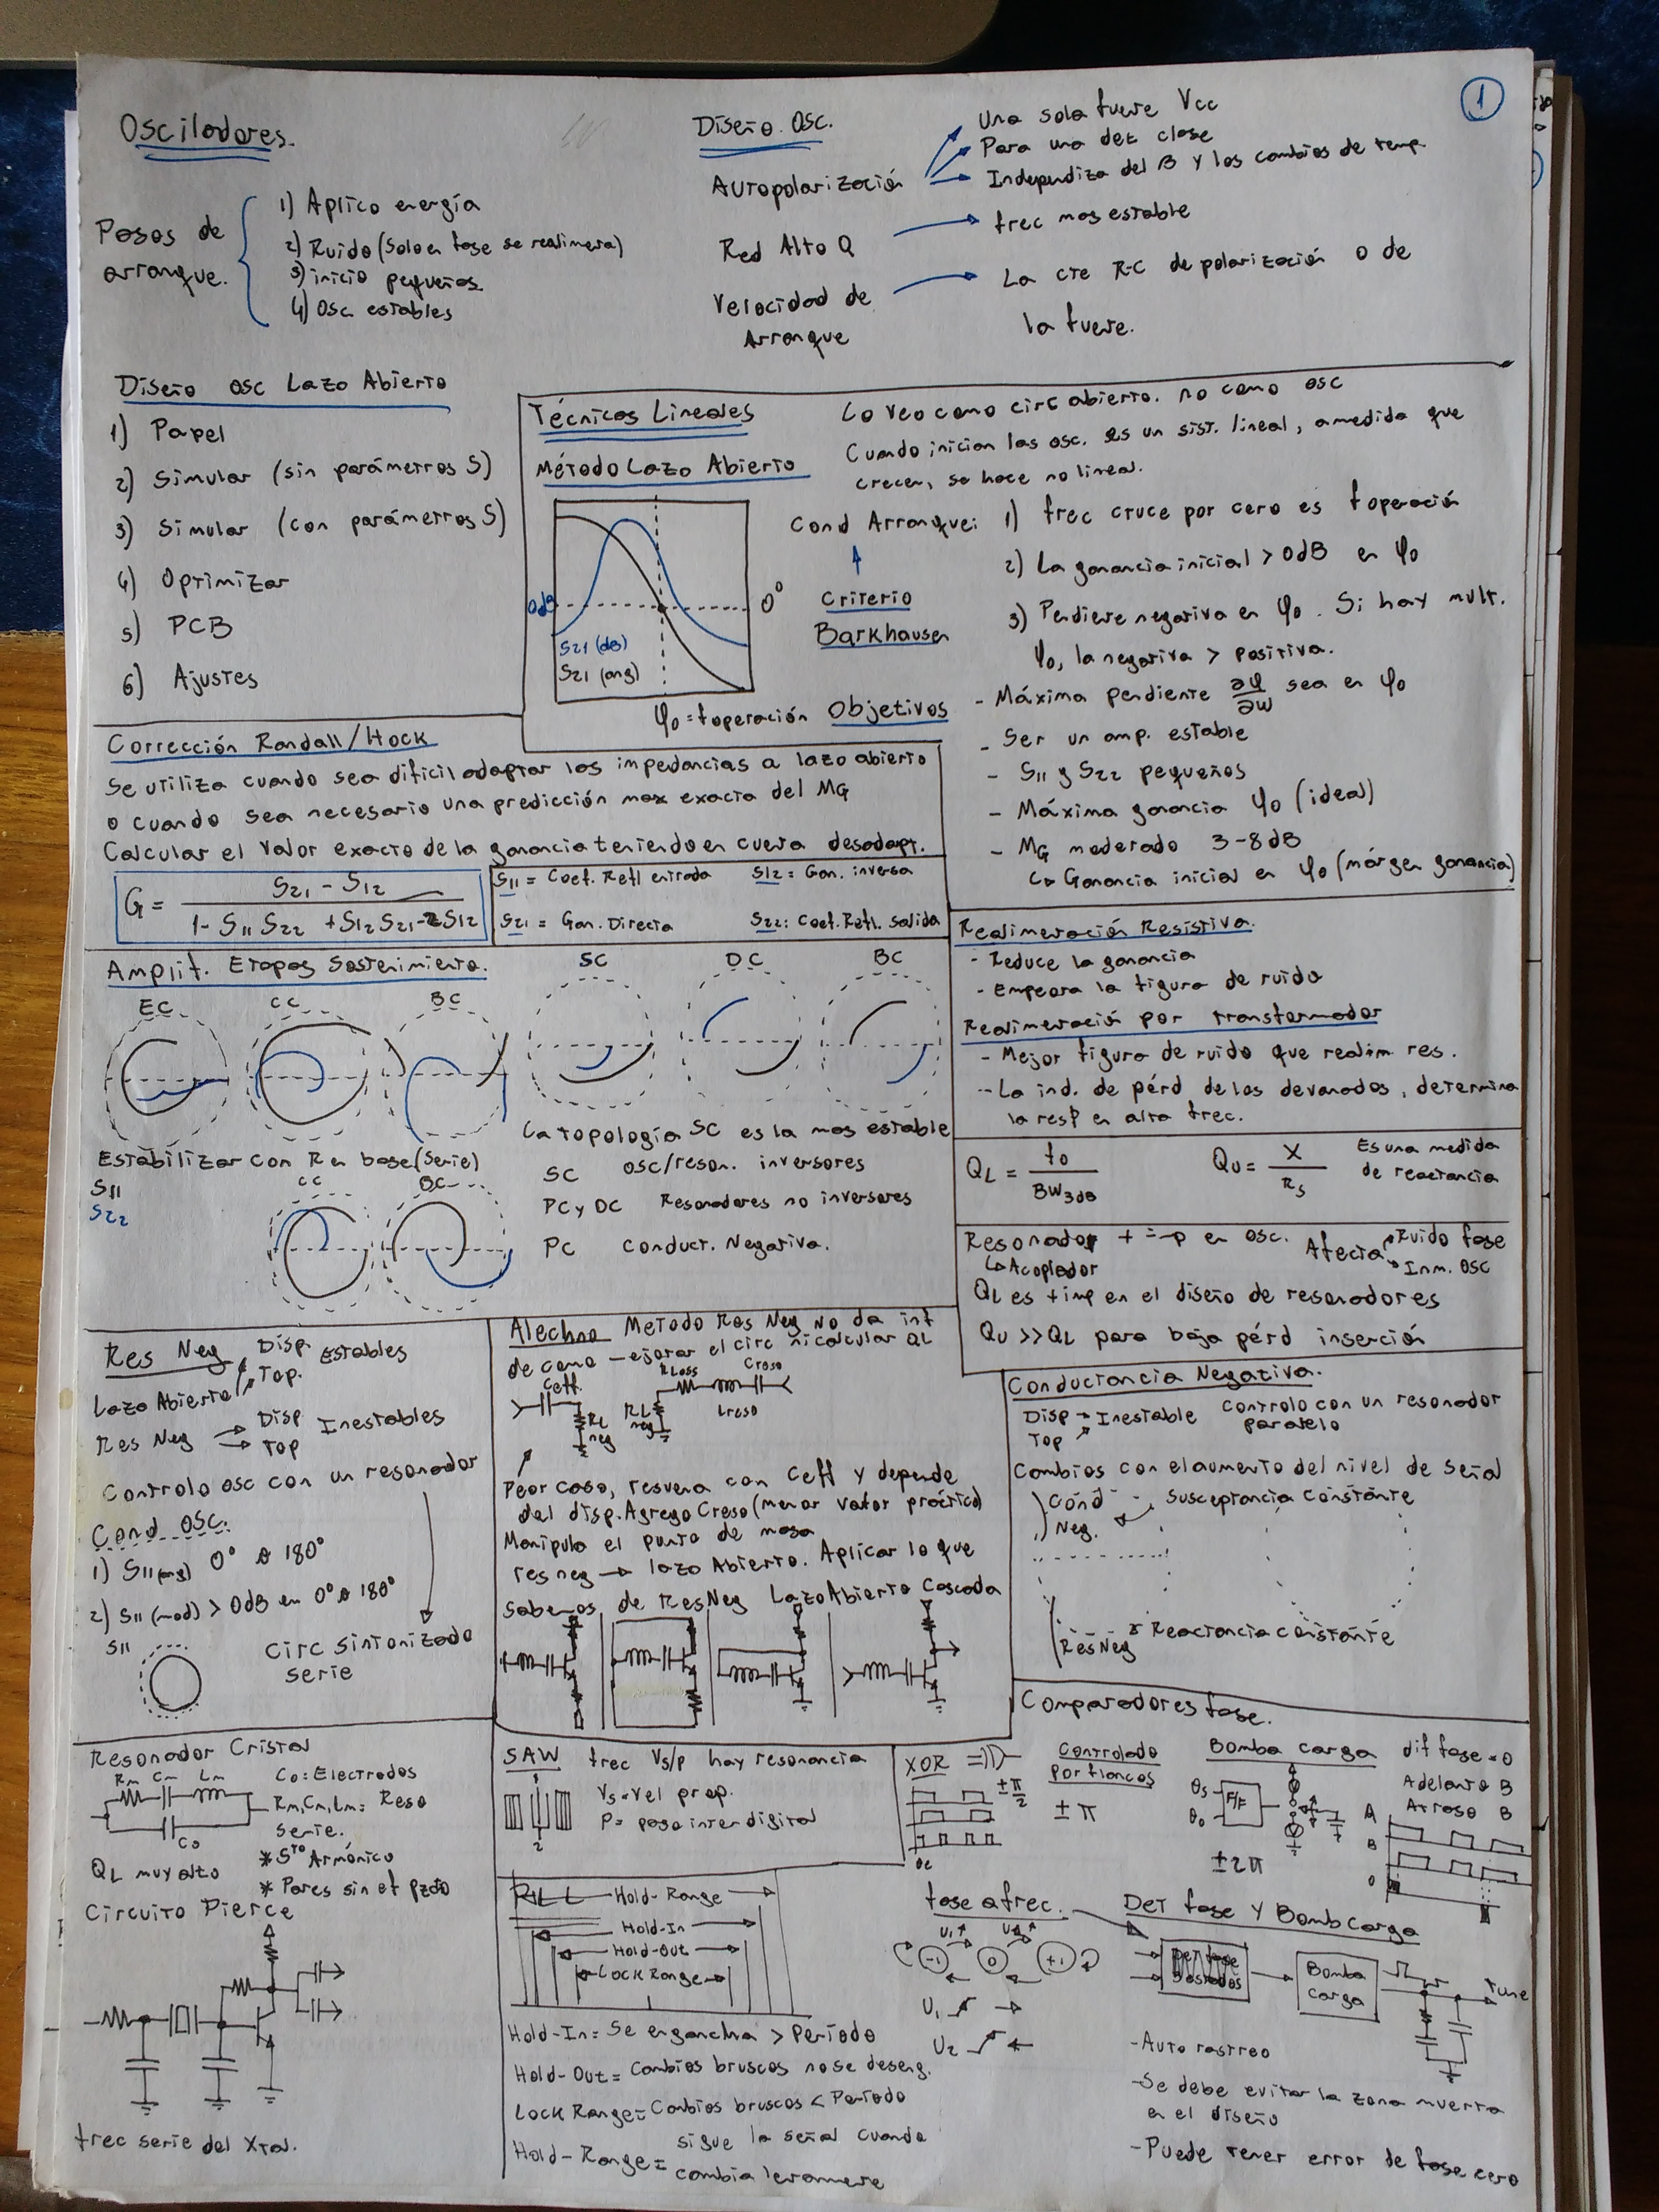 1
Osciladores.
Pasos de
arranque.
1) Aplico energía
2) Ruido (Solo en fase se realimenta)
3) inicio pequeñas
4) Osc estables
Diseño Osc.
Autopolarización
Una sola fuente Vcc
Para una det clase
Independiza del B y los cambios de temp.
Red Alto Q
frec mas estable
Velocidad de
Arranque
La cte R-C de polarización o de
la fuente.
Diseño osc Lazo Abierto
1) Papel
2) Simular (sin parámetros S)
3) Simular (con parámetros S)
4) Optimizar
5) PCB
6) Ajustes
Técnicas Lineales
Método Lazo Abierto
Lo veo como circ abierto. no como osc
Cuando inician las osc. es un sist. lineal, a medida que
crecen, se hace no lineal.
0dB
0°
S21 (dB)
S21 (ang)
φ0 = foperación
Cond Arranque:
Criterio
Barkhausen
1) frec cruce por cero es foperación
2) La ganancia inicial > 0dB en φ0
3) Pendiente negativa en φ0. Si hay mult.
φ0, la negativa > positiva.
Objetivos
- Máxima pendiente ∂φ/∂w sea en φ0
- Ser un amp. estable
- S11 y S22 pequeños
- Máxima ganancia φ0 (ideal)
- MG moderado 3-8dB
↳ Ganancia inicial en φ0 (márgen ganancia)
Corrección Randall/Hock
Se utiliza cuando sea dificil adaptar las impedancias a lazo abierto
o cuando sea necesario una predicción max exacta del MG
Calcular el valor exacto de la ganancia teniendo en cuenta desadapt.
G = S21 - S12 / 1 - S11 S22 + S12 S21 - 2S12
S11 = Coef. Refl entrada S12 = Gan. inversa
S21 = Gan. Directa S22: Coef. Refl. Salida
Amplif. Etapas Sostenimiento.
EC CC BC SC DC BC
Estabilizar con R en base (serie)
S11
S22
CC BC
La topología SC es la mas estable
SC osc/reson. inversores
PC y DC Resonadores no inversores
PC Conduct. Negativa.
Realimentación Resistiva.
- Reduce la ganancia
- Empeora la figura de ruido
Realimentación por transformador
- Mejor figura de ruido que realim res.
- La ind. de pérd de los devanados, determina
la resp en alta frec.
QL = f0 / BW3dB
QU = X / Rs
Es una medida
de reactancia
Resonador + imp en osc. Afecta Ruido fase
↳ Acoplador
Inm. OSC
QL es + imp en el diseño de resonadores
QU >> QL para baja pérd inserción
Res Neg
Lazo Abierto Disp. Top. Estables
Res Neg Disp Top Inestables
Controlo osc con un resonador
Cond OSC:
1) S11 (ang) 0° o 180°
2) S11 (mod) > 0dB en 0° o 180°
S11
Circ Sintonizado
serie
Alechno Metodo Res Neg No da inf
de como mejorar el circ ni calcular QL
Ceff
RL
neg
RLoss
Creso
Lreso
RL
neg
Peor caso, resuena con Ceff y depende
del disp. Agrego Creso (menor valor práctico)
Manipulo el punto de masa
res neg → lazo Abierto. Aplicar lo que
sabemos de Res Neg Lazo Abierto Cascada
Conductancia Negativa.
Disp
Top
Inestable Controlo con un resonador
paralelo
Cambios con el aumento del nivel de señal
Cond
Neg.
Susceptancia Constante
Res Neg
Reactancia constante
Resonador Cristal
Rm Cm Lm
Co
Co: Electrodos
Rm, Cm, Lm = Reso
serie.
QL muy alto
* 5to Armónico
* Pares sin ef pzdo
Circuito Pierce
frec serie del Xtal.
SAW frec Vs/p hay resonancia
Vs = vel prop.
P = paso interdigital
1
2
PLL
Hold-Range
Hold-In
Hold-Out
Lock Range
Hold-In = Se engancha > Período
Hold-Out = Cambios bruscos no se deseng.
Lock Range = Cambios bruscos < Período
Hold-Range = sigue la señal cuando
cambia levemente
Comparadores fase.
XOR
± π/2
Controlado
por flancos
± π
Bomba carga
θs
θo
F/F
± 2π
dif fase = 0
Adelanto B
Atraso B
A
B
0
fase a frec.
-1 0 +1
U1
U2
Det fase y Bomb carga
Bomba
carga
Tune
- Auto rastreo
- Se debe evitar la zona muerta
en el diseño
- Puede tener error de fase cero